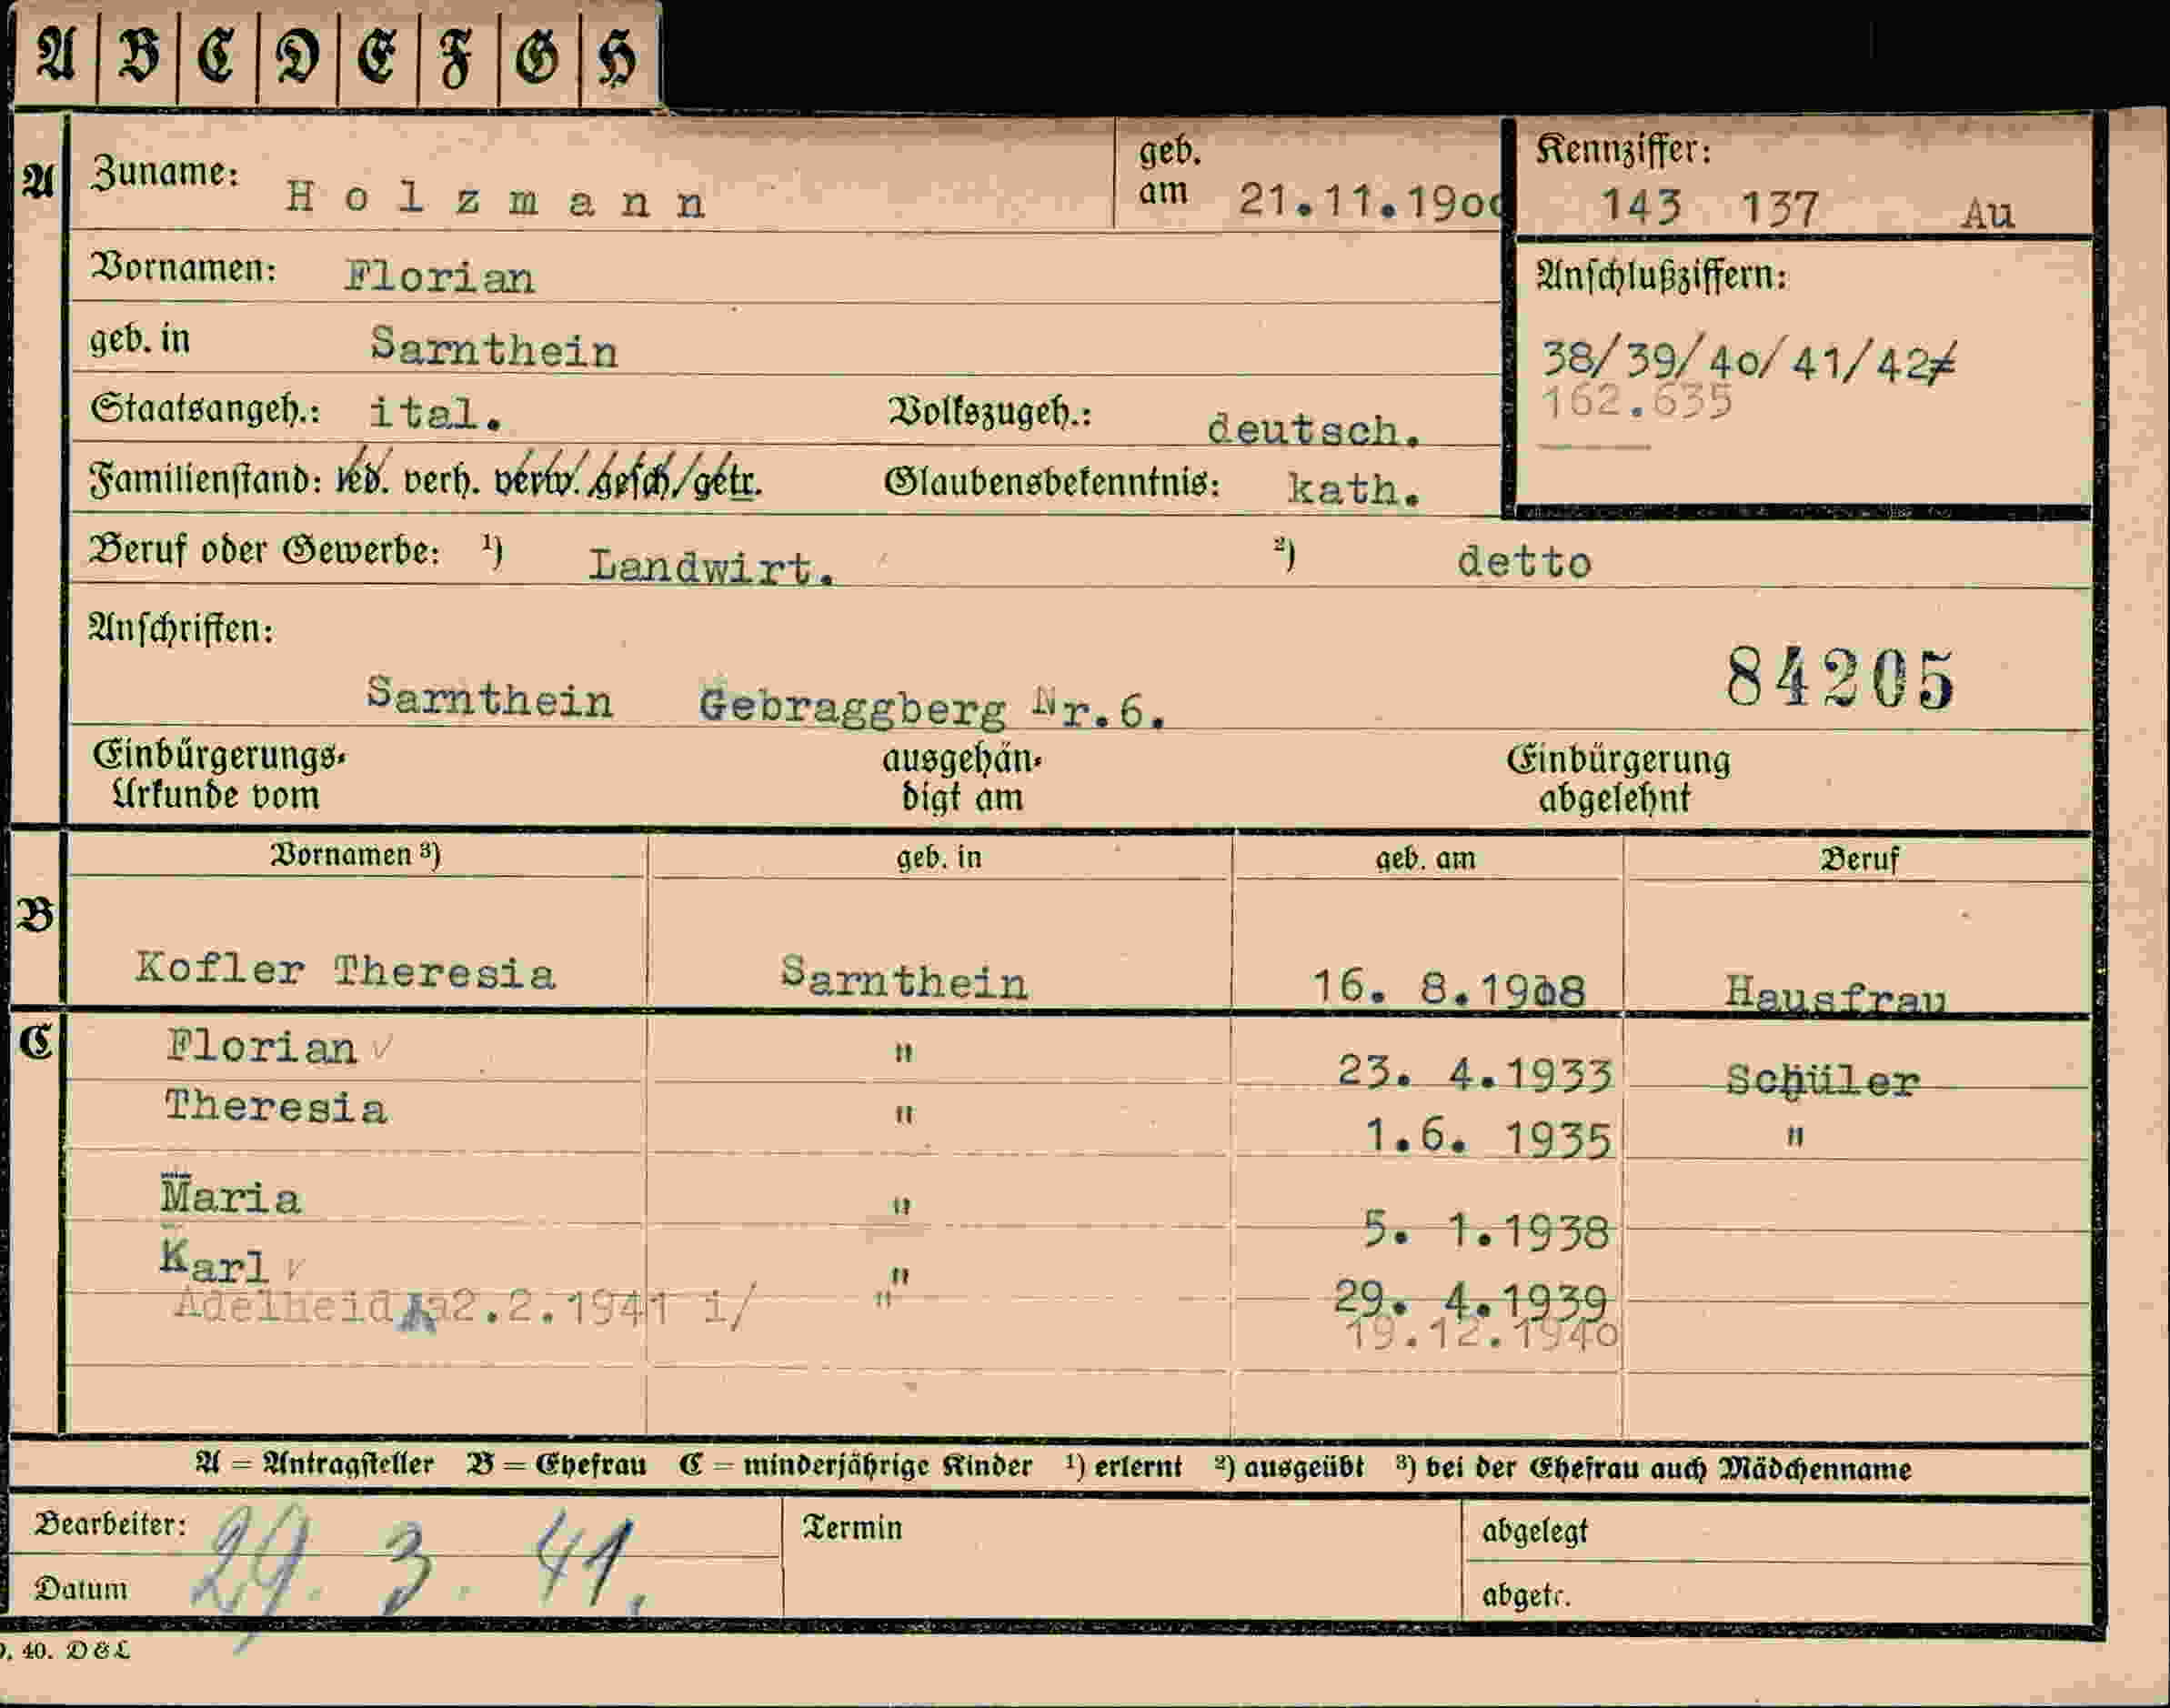 A B C D E F G H
A
Zuname: Holzmann geb. am 21.11.1900
Kennziffer: 143 137 Au
Vornamen: Florian
Anschlußziffern:
geb. in Sarnthein
38/39/40/41/42/
162.635
Staatsangeh.: ital. Volkszugeh.: deutsch.
Familienstand: led. verh. verw. gesch. getr. Glaubensbekenntnis: kath.
Beruf oder Gewerbe: ¹) Landwirt. ²) detto
Anschriften:
84205
Sarnthein Gebraggberg Nr.6.
Einbürgerungs-Urkunde vom ausgehändigt am Einbürgerung abgelehnt
B
Vornamen ³) geb. in geb. am Beruf
Kofler Theresia Sarnthein 16. 8.1908 Hausfrau
C
Florian " 23. 4.1933 Schüler
Theresia " 1.6. 1935 "
Maria " 5. 1.1938
Karl " 29. 4.1939
Adelheid 2.2.1941 i/ " 19.12.1940
A = Antragsteller B = Ehefrau C = minderjährige Kinder ¹) erlernt ²) ausgeübt ³) bei der Ehefrau auch Mädchenname
Bearbeiter: Termin abgelegt
29. 3. 41.
Datum abgetr.
40. D & L